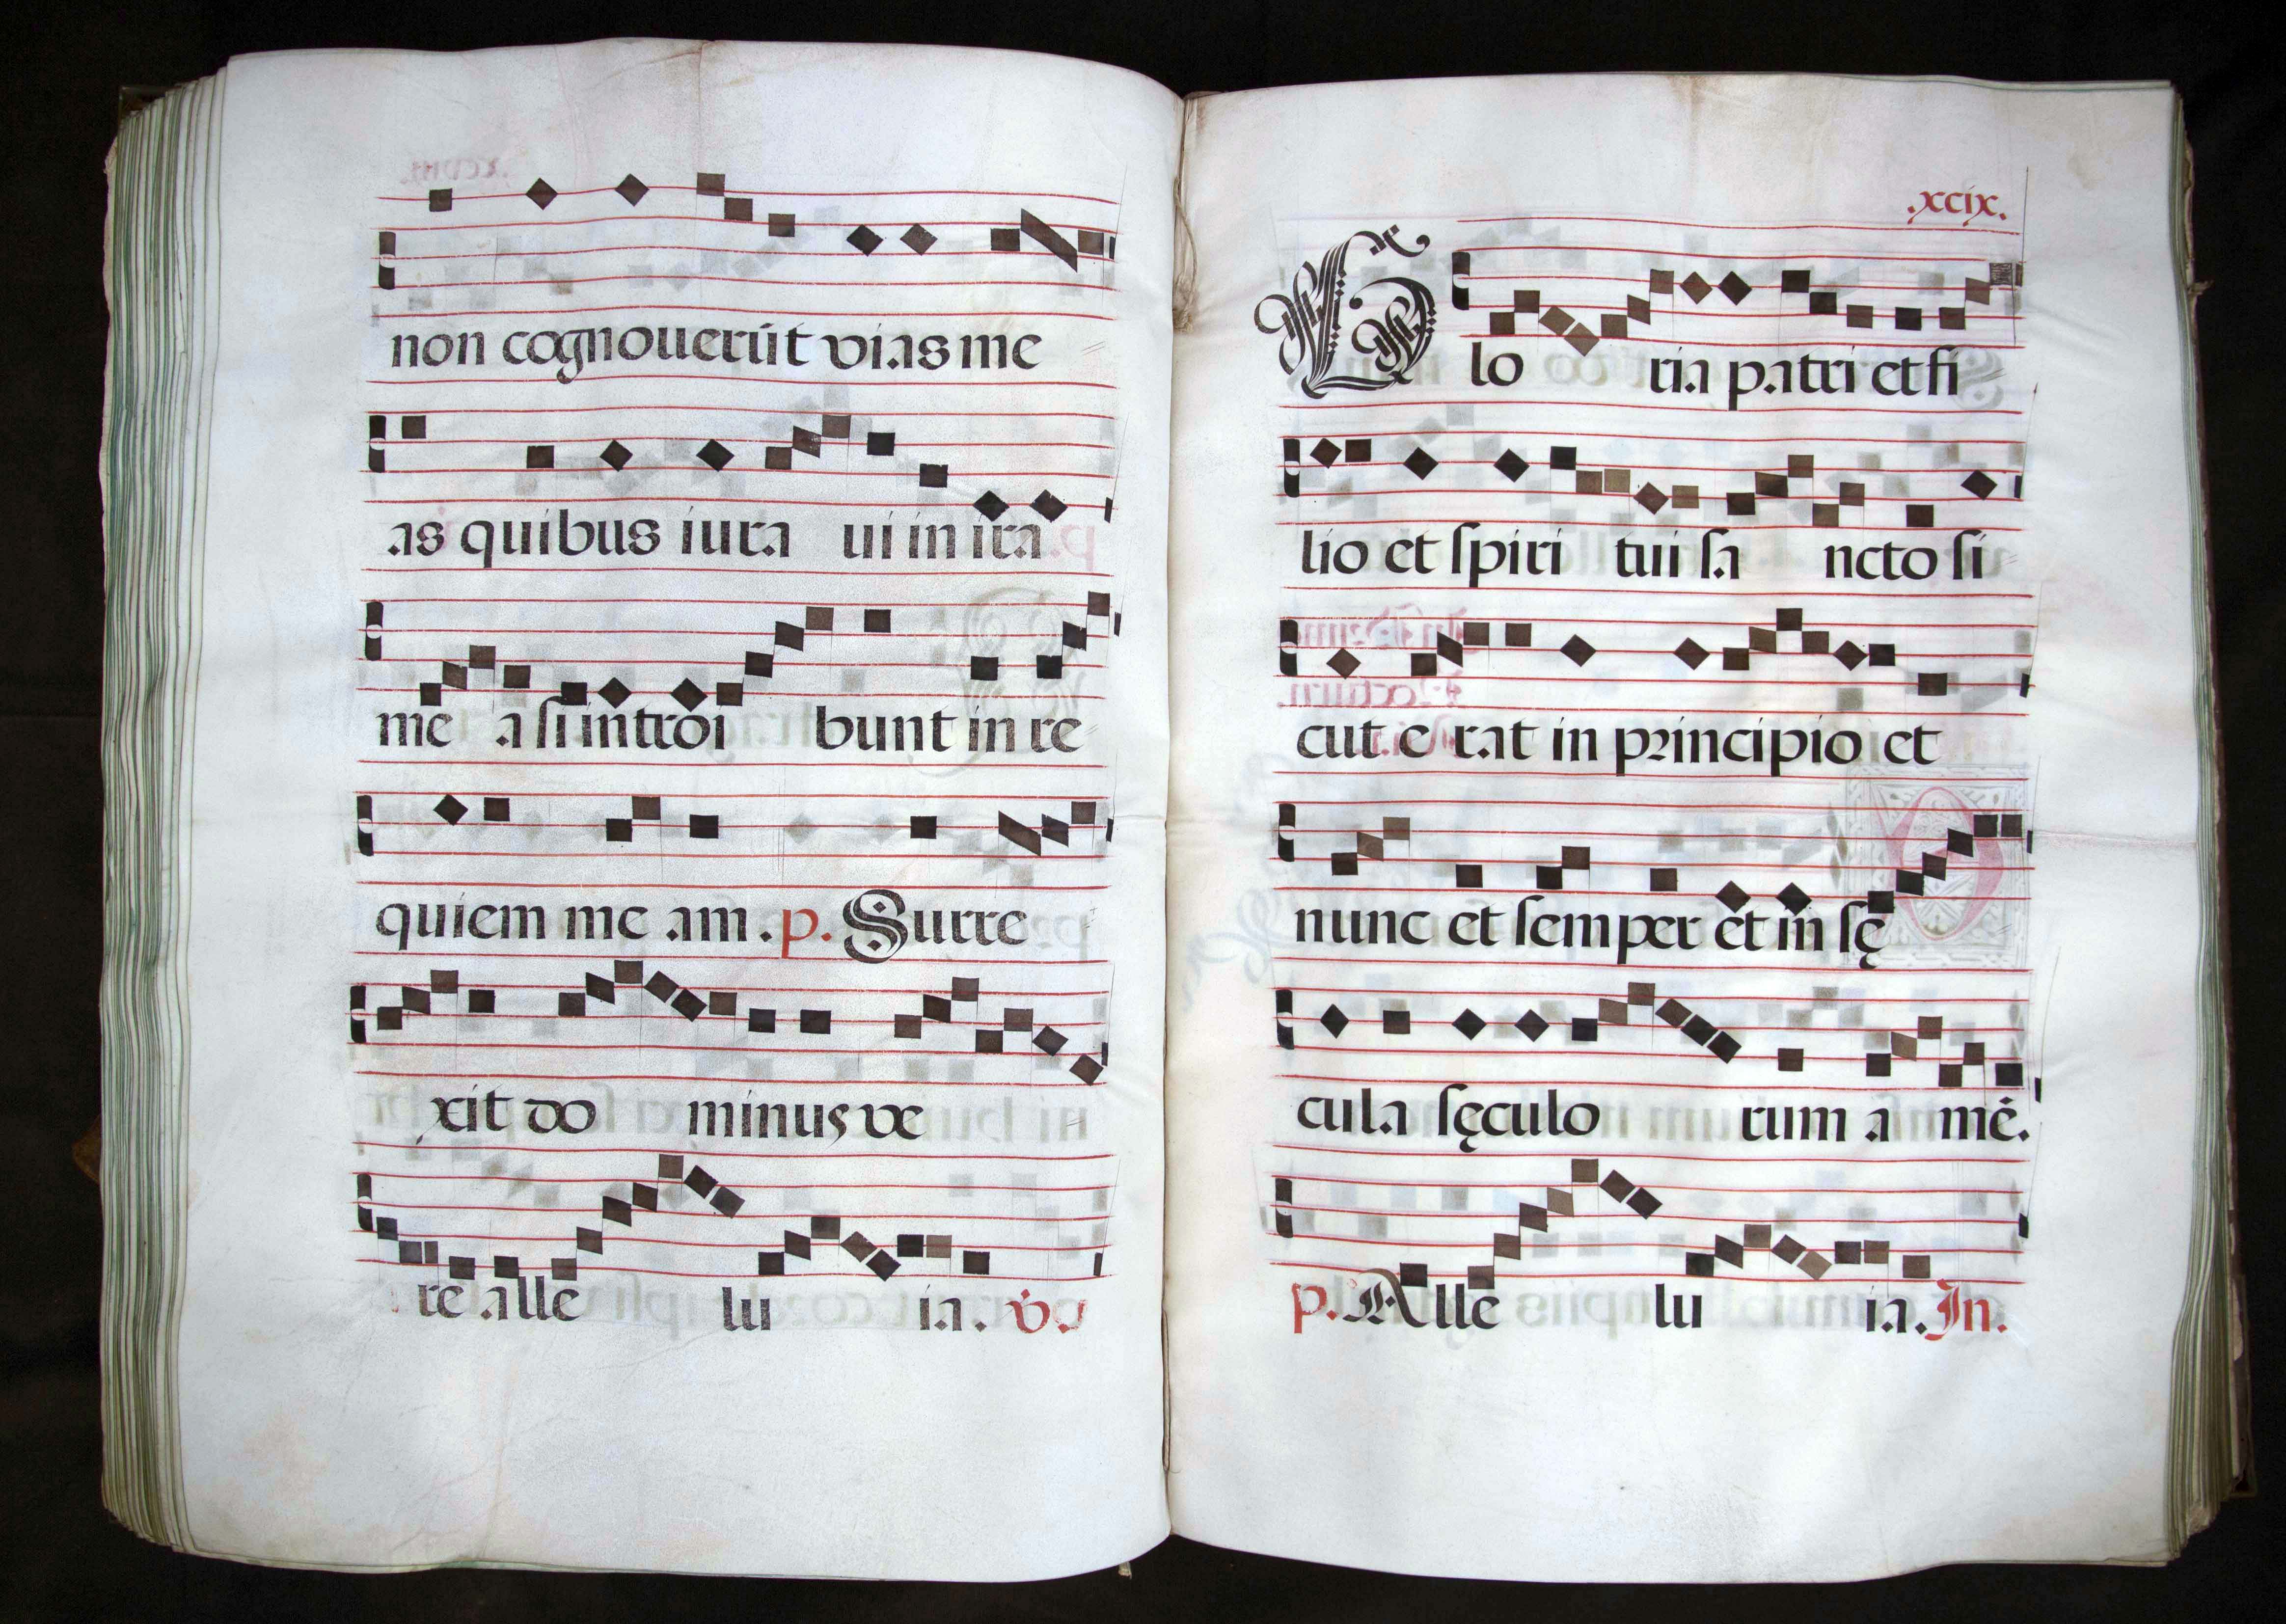 non cognouerūt vias me
as quibus iura ui in ira
me a si introi bunt in re
quiem me am . p. Surre
xit do minus ve
re alle lu ia . v.
.xcix.
Glo ria patri et fi
lio et spiri tui sa ncto si
cut e rat in principio et
nunc et semper et in sę
cula sęculo rum a mē.
p. Alle lu ia. In.